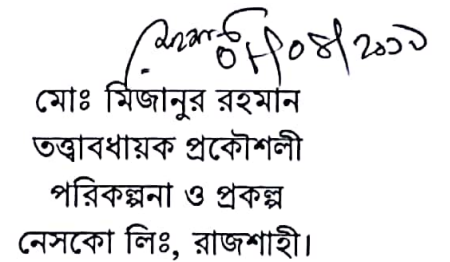 মোঃ মিজানুর রহমান
তত্ত্বাবধায়ক প্রকৌশলী
পরিকল্পনা ও প্রকল্প
নেসকো লিঃ, রাজশাহী।